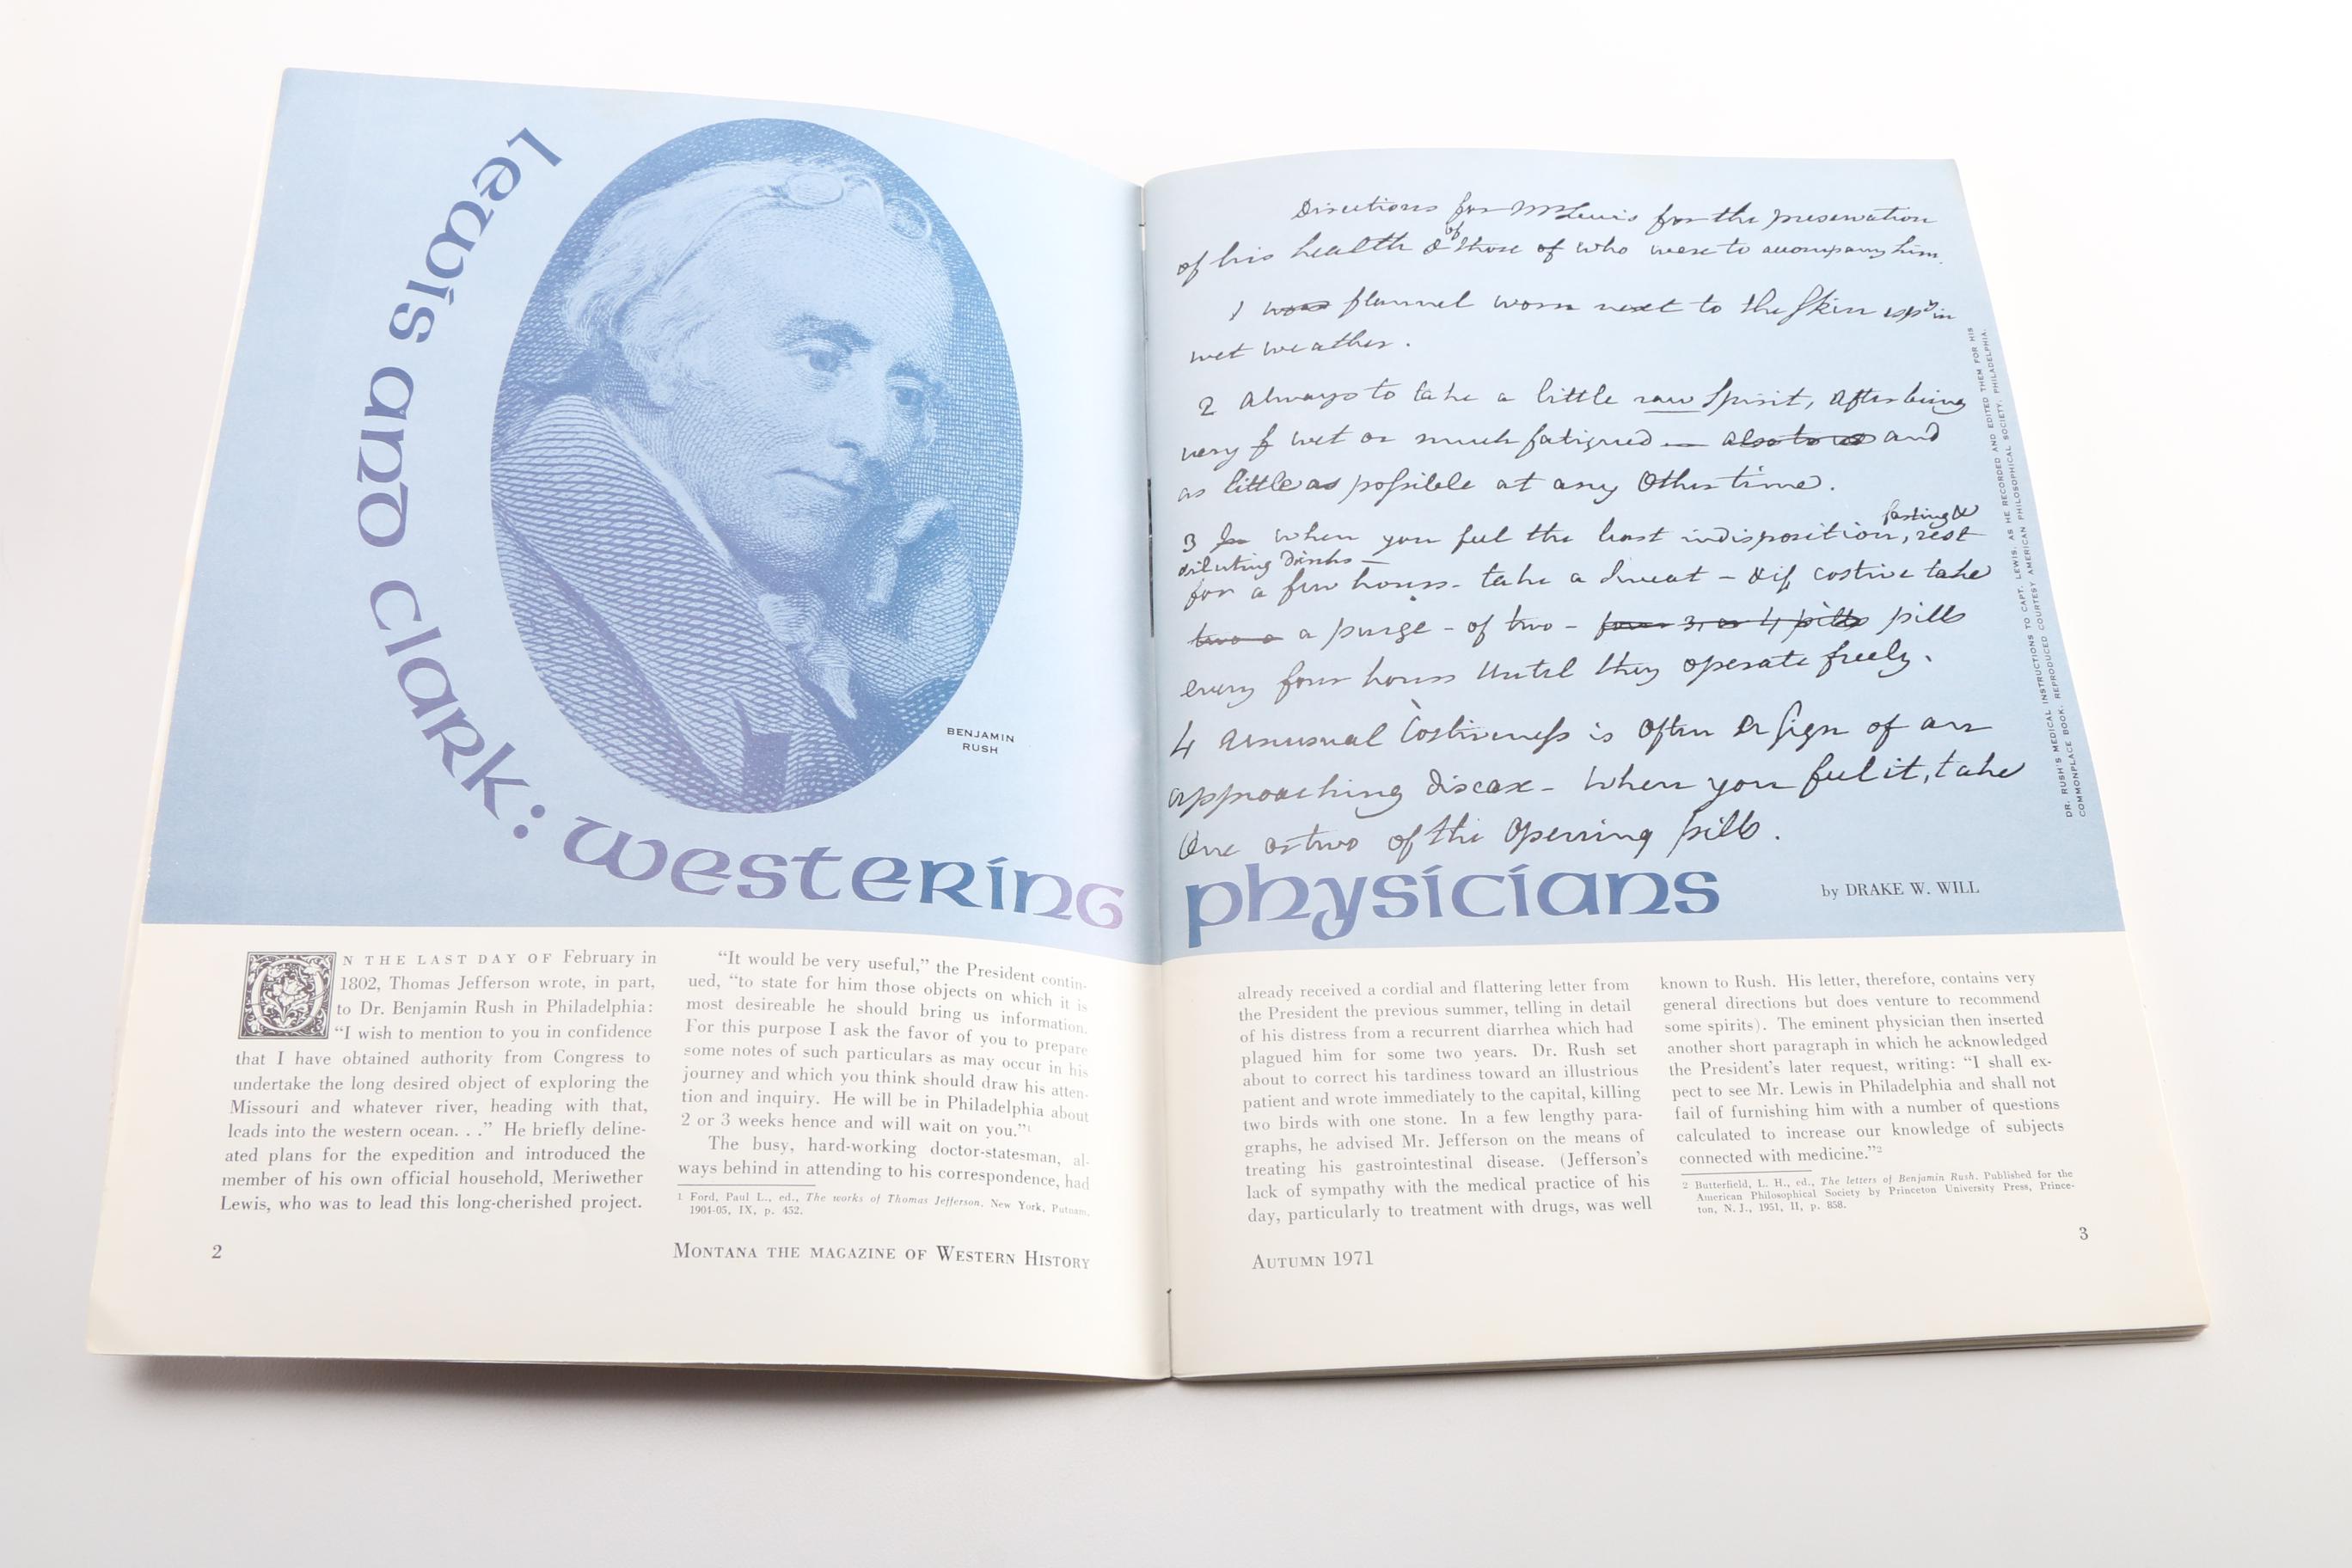 lewis and clark: westering physicians
BENJAMIN
RUSH
Directions for Mr Lewis for the preservation
of his health & of those of who were to accompany him.
1 flannel worn next to the skin espy in
wet weather.
2 Always to take a little raw spirit, after being
very wet or much fatigued — and
as little as possible at any other time.
3 when you feel the least indisposition, fasting & rest
diluting drinks —
for a few hours - take a sweat - & if costive take
a purge - of two - pills
every four hours until they operate freely.
4 Unusual Costiveness is often a sign of an
approaching disease - When you feel it, take
One or two of the Opening pills.
DR. RUSH'S MEDICAL INSTRUCTIONS TO CAPT. LEWIS, AS HE RECORDED AND EDITED THEM FOR HIS
COMMONPLACE BOOK. REPRODUCED COURTESY AMERICAN PHILOSOPHICAL SOCIETY, PHILADELPHIA.
by DRAKE W. WILL
ON THE LAST DAY OF February in
1802, Thomas Jefferson wrote, in part,
to Dr. Benjamin Rush in Philadelphia:
“I wish to mention to you in confidence
that I have obtained authority from Congress to
undertake the long desired object of exploring the
Missouri and whatever river, heading with that,
leads into the western ocean. . .” He briefly deline-
ated plans for the expedition and introduced the
member of his own official household, Meriwether
Lewis, who was to lead this long-cherished project.
“It would be very useful,” the President contin-
ued, “to state for him those objects on which it is
most desireable he should bring us information.
For this purpose I ask the favor of you to prepare
some notes of such particulars as may occur in his
journey and which you think should draw his atten-
tion and inquiry. He will be in Philadelphia about
2 or 3 weeks hence and will wait on you.”1
The busy, hard-working doctor-statesman, al-
ways behind in attending to his correspondence, had
1 Ford, Paul L., ed., The works of Thomas Jefferson, New York, Putnam,
1904-05, IX, p. 452.
2
MONTANA THE MAGAZINE OF WESTERN HISTORY
already received a cordial and flattering letter from
the President the previous summer, telling in detail
of his distress from a recurrent diarrhea which had
plagued him for some two years. Dr. Rush set
about to correct his tardiness toward an illustrious
patient and wrote immediately to the capital, killing
two birds with one stone. In a few lengthy para-
graphs, he advised Mr. Jefferson on the means of
treating his gastrointestinal disease. (Jefferson's
lack of sympathy with the medical practice of his
day, particularly to treatment with drugs, was well
known to Rush. His letter, therefore, contains very
general directions but does venture to recommend
some spirits). The eminent physician then inserted
another short paragraph in which he acknowledged
the President's later request, writing: “I shall ex-
pect to see Mr. Lewis in Philadelphia and shall not
fail of furnishing him with a number of questions
calculated to increase our knowledge of subjects
connected with medicine.”2
2 Butterfield, L. H., ed., The letters of Benjamin Rush. Published for the
American Philosophical Society by Princeton University Press, Prince-
ton, N. J., 1951, II, p. 858.
AUTUMN 1971
3